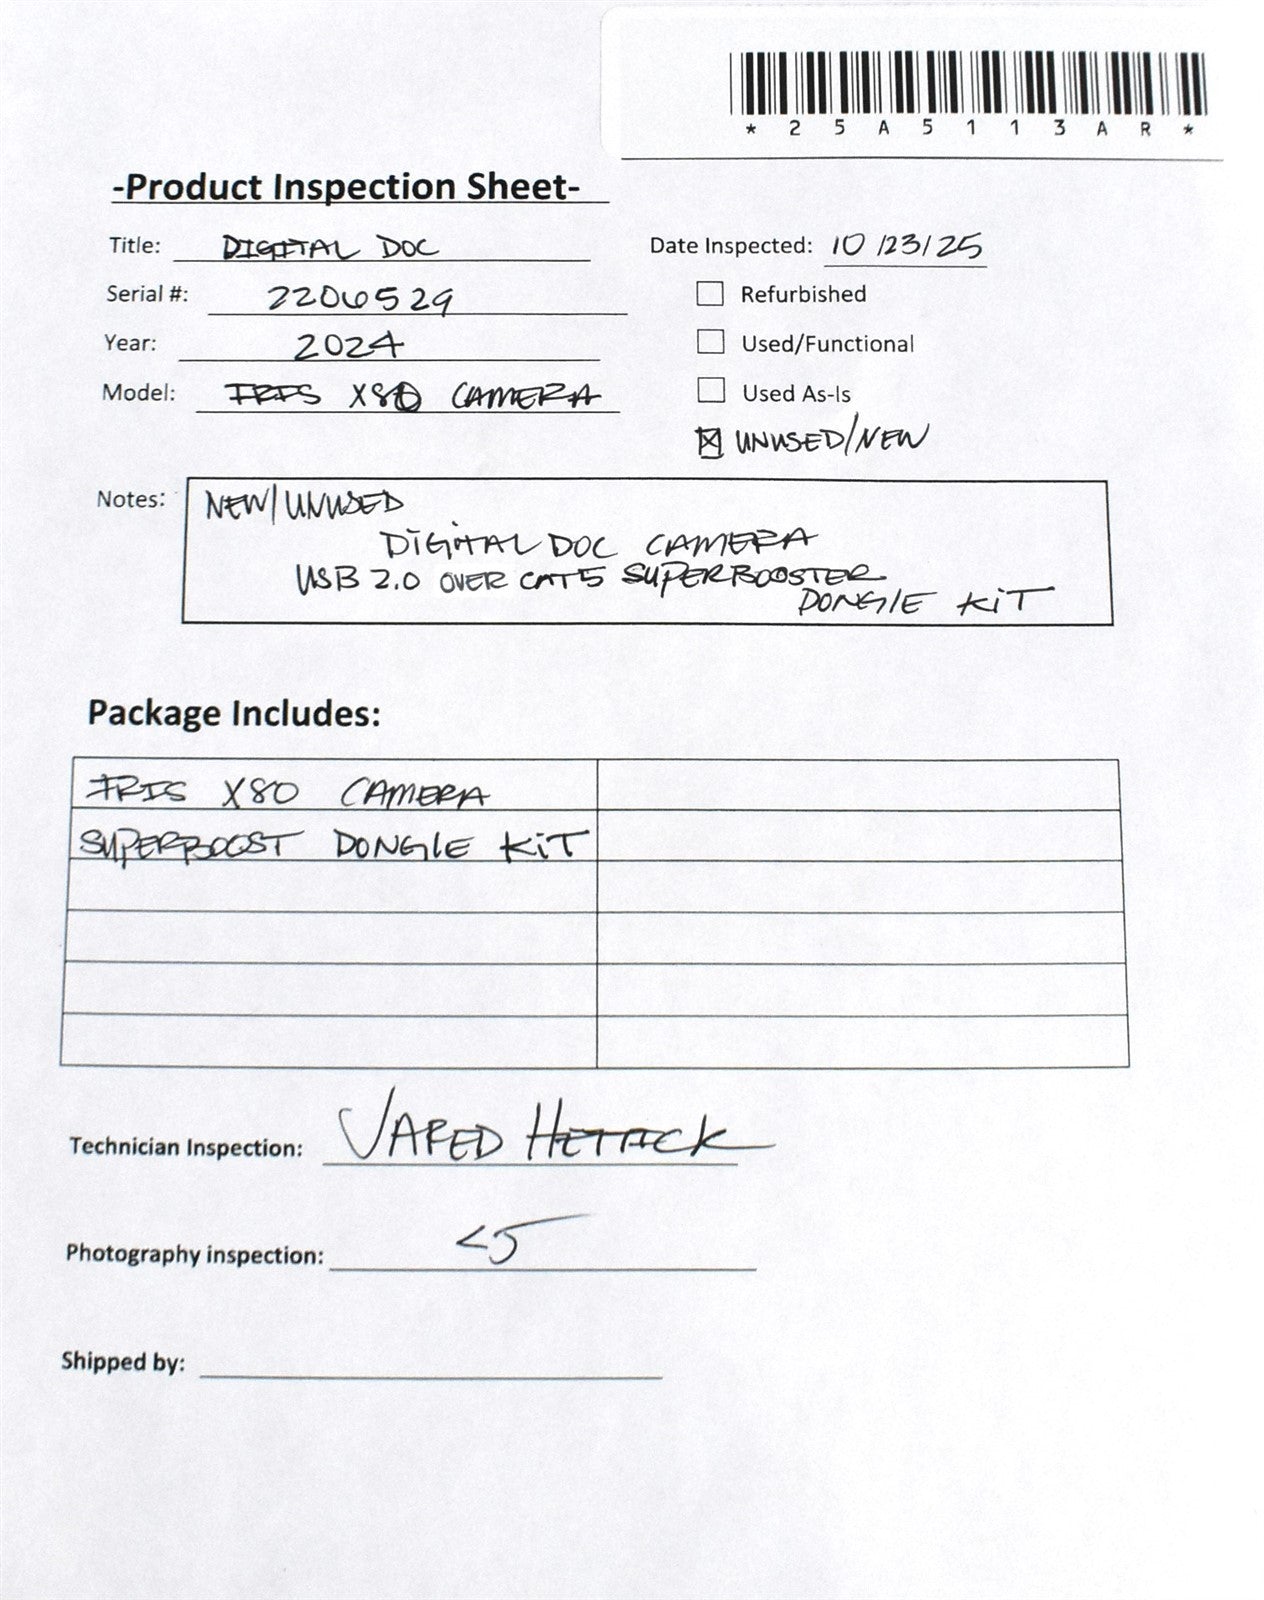 *25A5113AR*
-Product Inspection Sheet-
Title: DIGITAL DOC
Date Inspected: 10/23/25
Serial #: 2206529
Refurbished
Year: 2024
Used/Functional
Model: IRIS X80 CAMERA
Used As-Is
UNUSED/NEW
Notes: NEW/UNUSED
DIGITAL DOC CAMERA
USB 2.0 OVER CAT5 SUPERBOOSTER
DONGLE KIT
Package Includes:
IRIS X80 CAMERA
SUPERBOOST DONGLE KIT
Technician Inspection: JARED HETRICK
Photography inspection:
Shipped by: